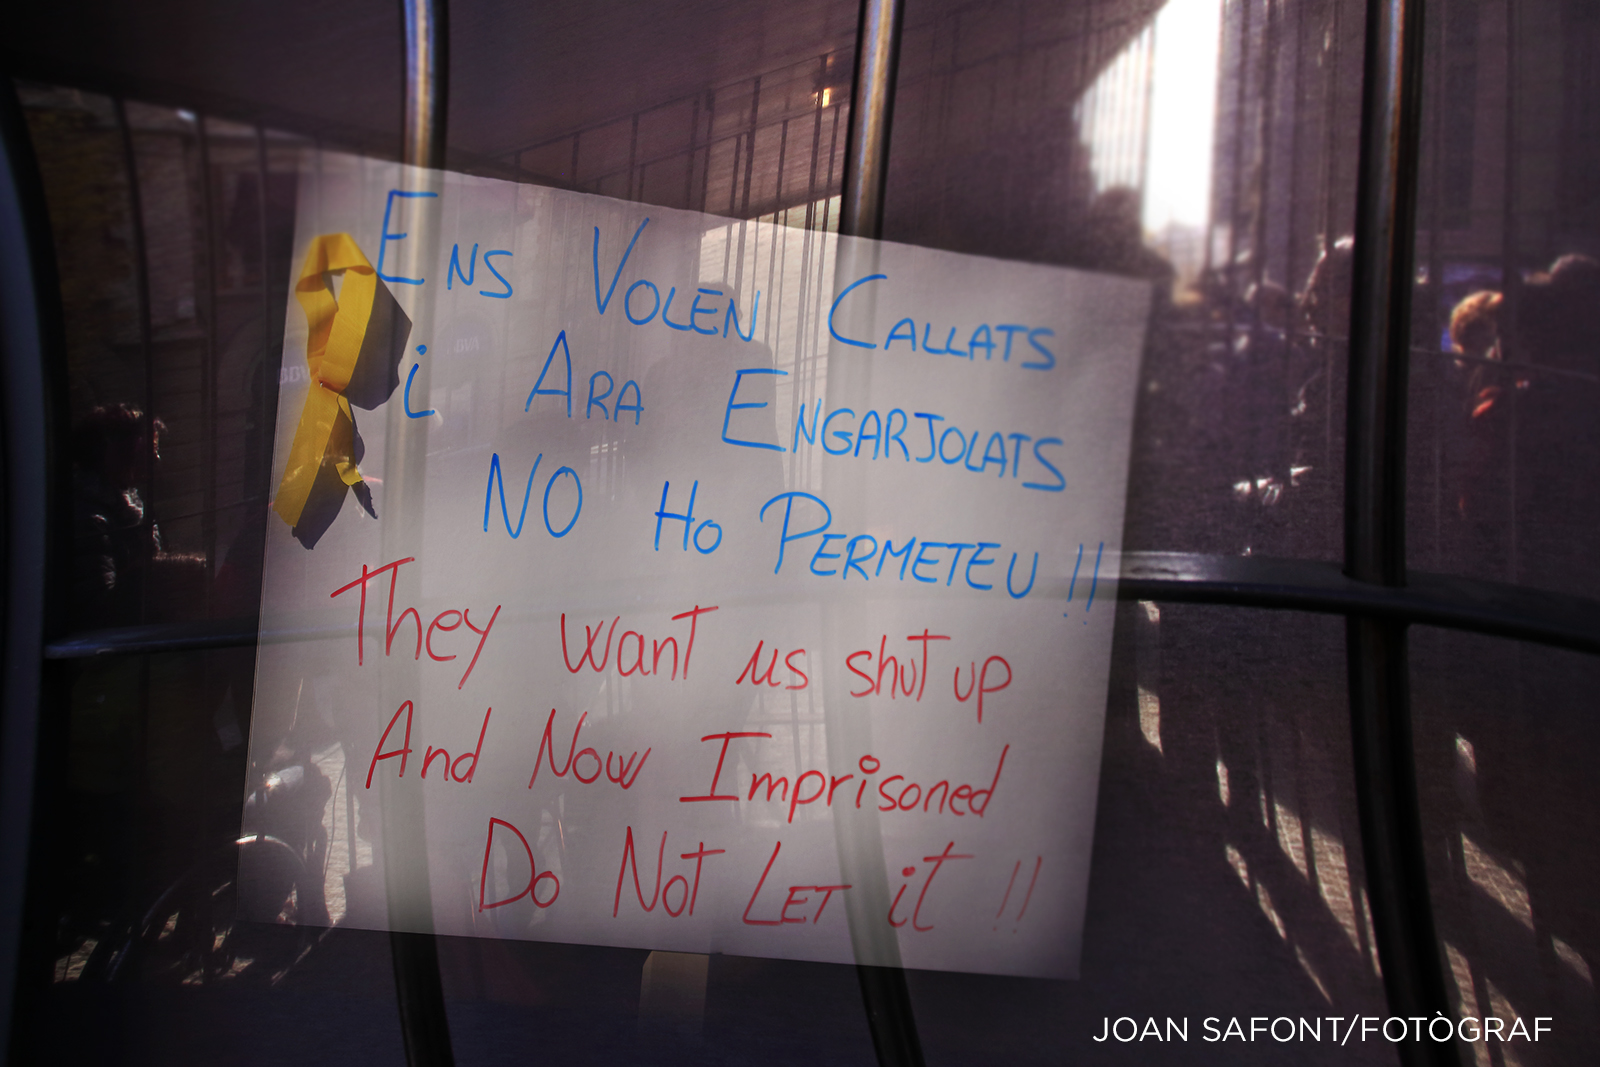 Ens Volen Callats
i Ara Engarjolats
NO Ho Permeteu !!
They want us shut up
And Now Imprisoned
Do Not Let it !!
JOAN SAFONT/FOTÒGRAF